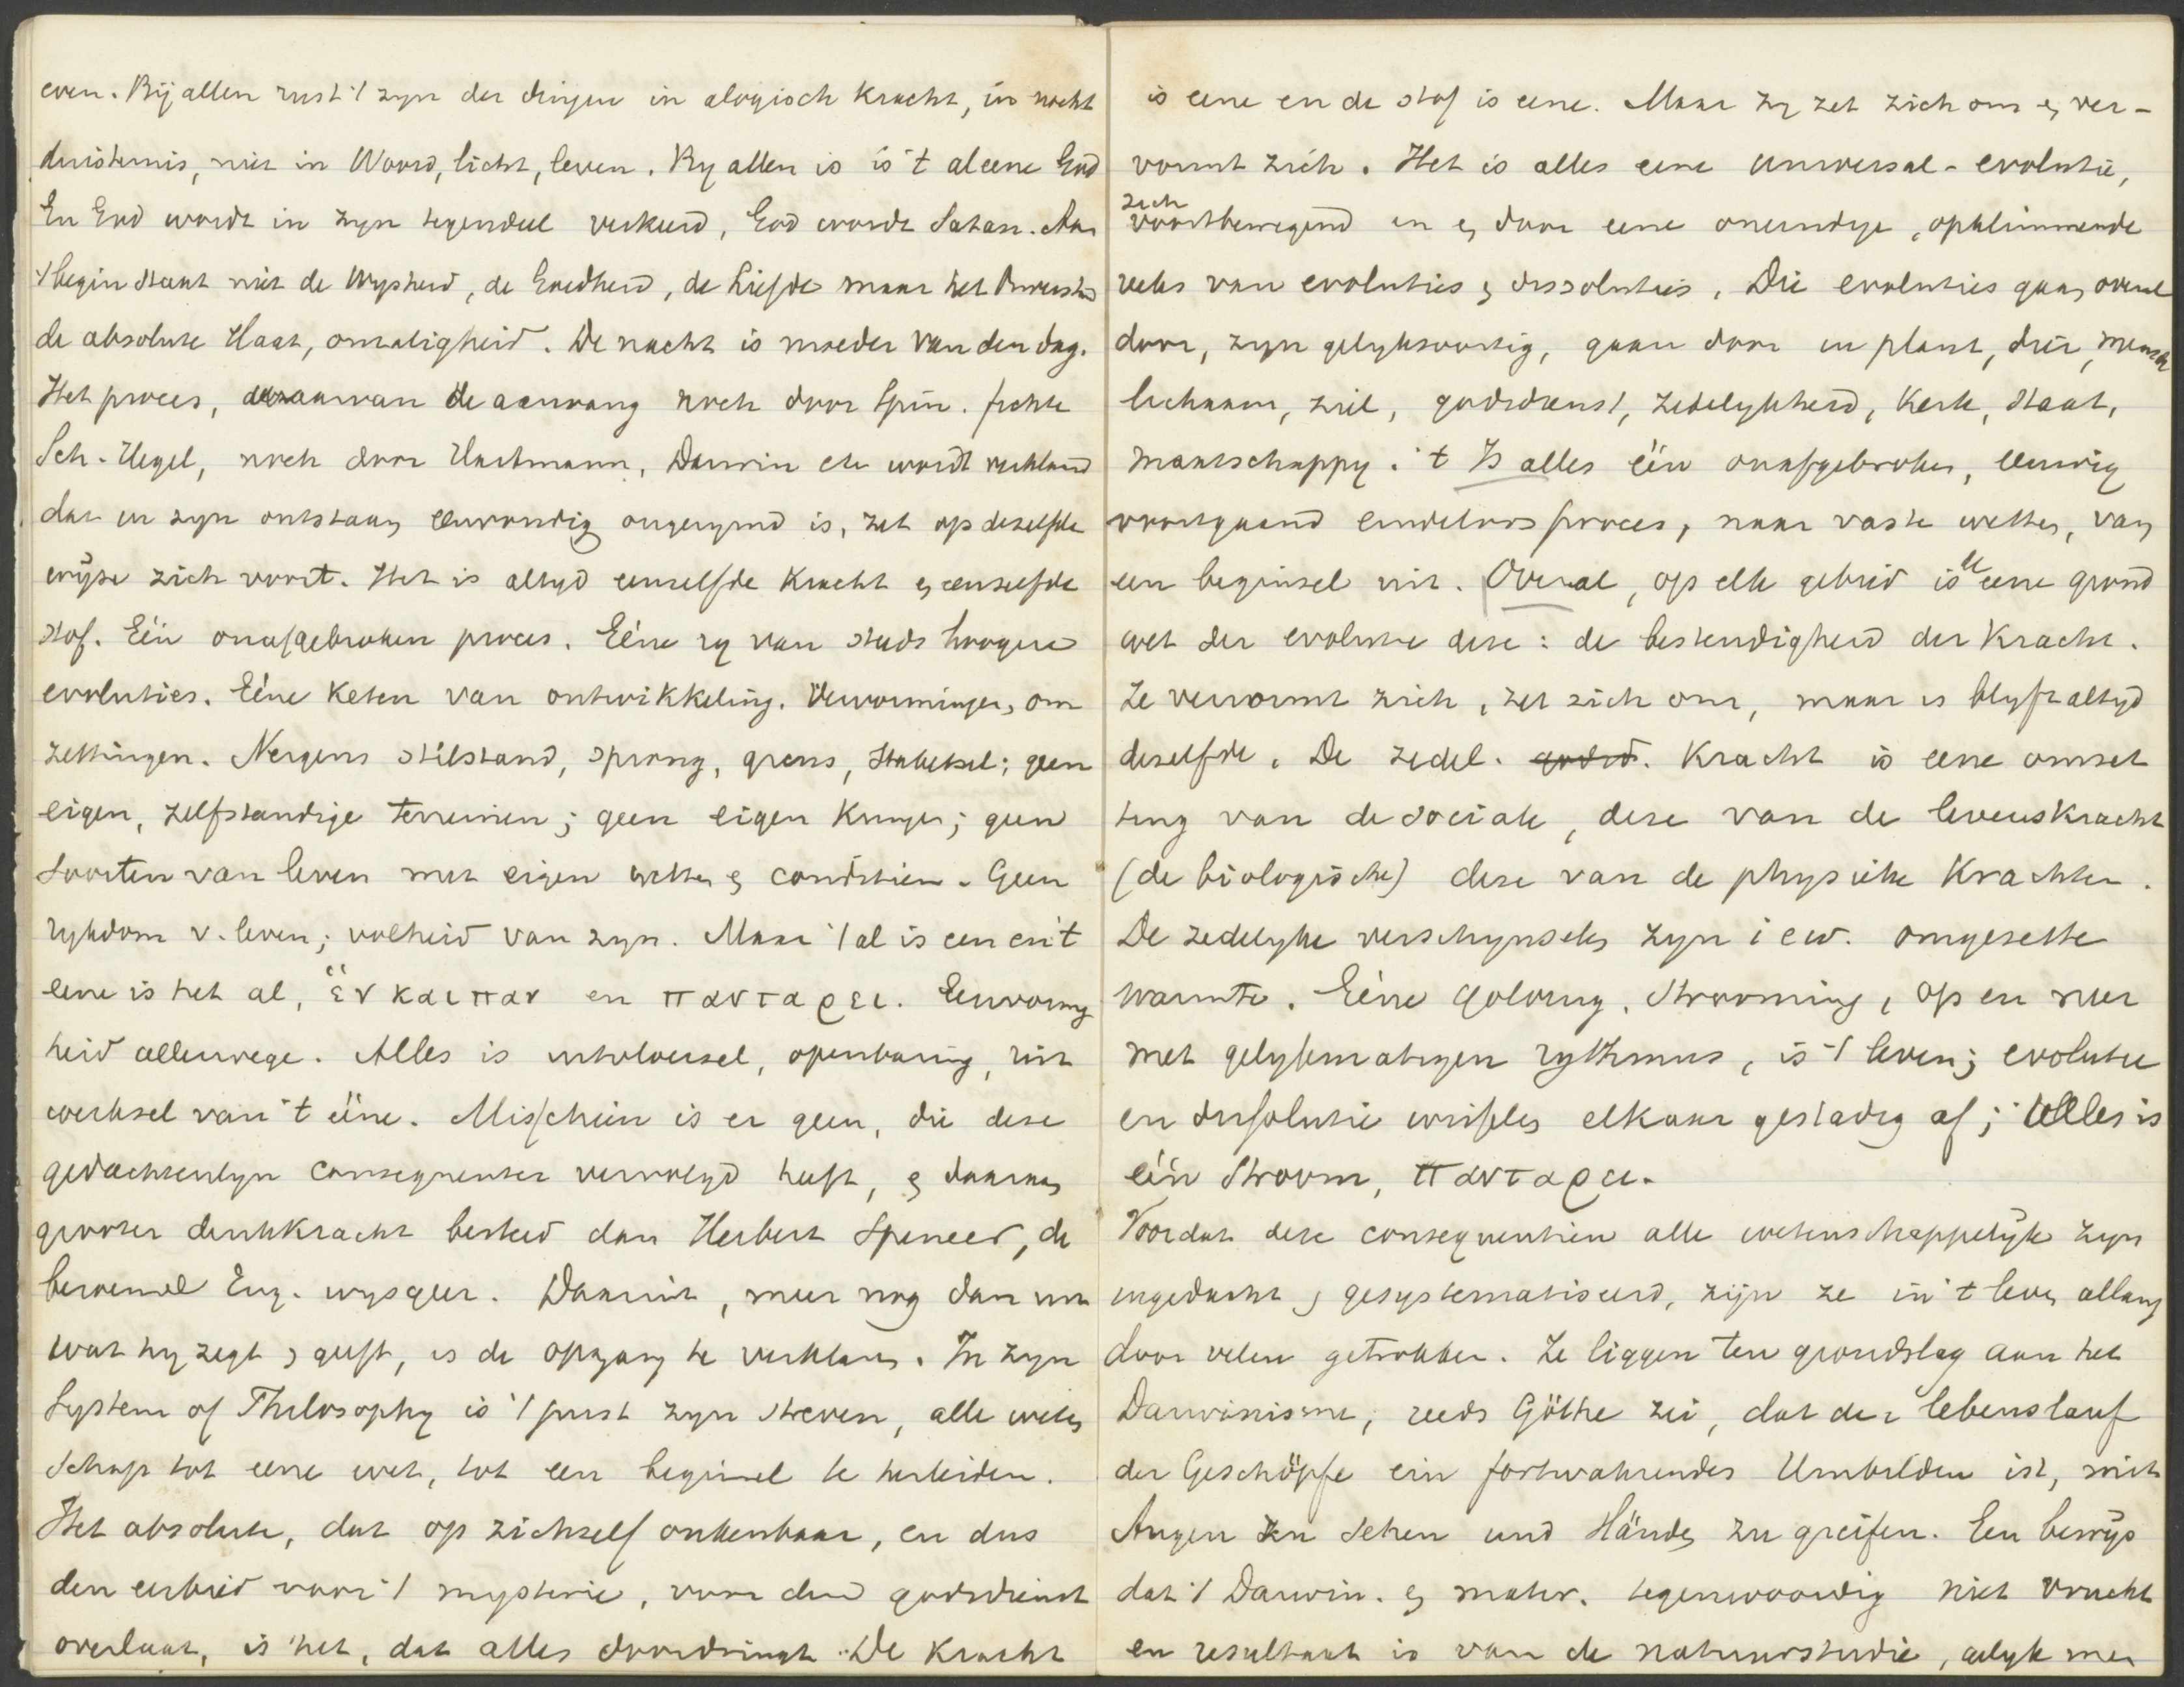 even. Bij allen rust 't zyn der dingen in alogisch kracht, in nacht
duisternis, niet in Woord, licht, leven. By allen is is 't al eene God
En God wordt in zyn tegendeel verkeerd, God wordt Satan. Aan
't begin staat niet de Wysheid, de Goedheid, de Liefde maar het
de absolute Haat, onzaligheid. De nacht is moeder van den dag.
Het proces, waarvan de aanvang noch door Spin. Fichte
Sch. Hegel, noch door Hartmann, Darwin etc wordt verklaard
dat in zyn ontstaan eenvoudig ongerymd is, zet op dezelfde
wyze zich voort. Het is altyd eenzelfde Kracht en eenzelfde
stof. Eén onafgebroken proces. Eéne ry van steeds hoogere
evoluties. Eéne Keten van ontwikkeling. Vervormingen, om
zettingen. Nergens stilstand, sprong, grens, ; geen
eigen, zelfstandige terreinen; geen eigen Kringen; geen
soorten van leven met eigen wetten en conditien. Geen
rykdom v. leven; volheid van zyn. Maar 't al is een en 't
eene is het al, ἑν και παν en παντα ρει. Eenvormig
heid allerwege. Alles is uitvloeisel, openbaring, uit
werksel van 't ééne. Misschien is er geen, die deze
gedachtenlyn consequenter vervolgd heeft, en daaraan
grooter denkkracht besteed dan Herbert Spencer, de
beroemde Eng. wysgeer. Daaruit, meer nog dan uit
wat hy zegt en geeft, is de opgang te verklaren. In zyn
System of Philosophy is 't juist zyn streven, alle weten
schap tot eene wet, tot een beginsel te herleiden.
Het absolute, dat op zichzelf onkenbaar, en dus
den eerbied voor 't mysterie, voor den godsdienst
overlaat, is het, dat alles doordringt. De Kracht
is eene en de stof is eene. Maar zy zet zich om en ver-
vormt zich. Het is alles eene universal-evolutie,
zich
voortbewegend in en door eene oneindige, opklimmende
reeks van evoluties en dissoluties. Die evoluties gaan overal
door, zyn gelyksoortig, gaan door in plant, dier, mensch
lichaam, ziel, godsdienst, zedelykheid, Kerk, Staat,
maatschappy. 't Is alles één onafgebroken, eeuwig
voortgaand eindeloos proces, naar vaste wetten, van
een beginsel uit. Overal, op elk gebied is de eene grond
wet der evolutie deze: de bestendigheid der Kracht.
Ze vervormt zich, zet zich om, maar is blyft altyd
dezelfde. De zedel. godsd. Kracht is eene omzet
ting van de sociale, deze van de levenskracht
(de biologische) deze van de physieke Krachten.
De zedelyke verschynselen zyn i e w. omgezette
warmte. Eéne golving, strooming, op en neer
met gelykmatigen rythmus, is 't leven; evolutie
en dissolutie wisselen elkaar gestadig af; alles is
één Stroom, παντα ρει.
Voordat deze consequentien alle wetenschappelyk zyn
ingedacht en gesystematiseerd, zijn ze in 't leven allang
door velen getrokken. Ze liggen ten grondslag aan het
Darwinisme; reeds Göthe zei, dat der lebenslauf
der Geschöpfe ein fortwahrendes Umbilden ist, mit
Augen zu sehen und Händen zu greifen. Een bewys
dat 't Darwin. en mater. tegenwoordig niet vrucht
en resultaat is van de natuurstudie, gelyk men